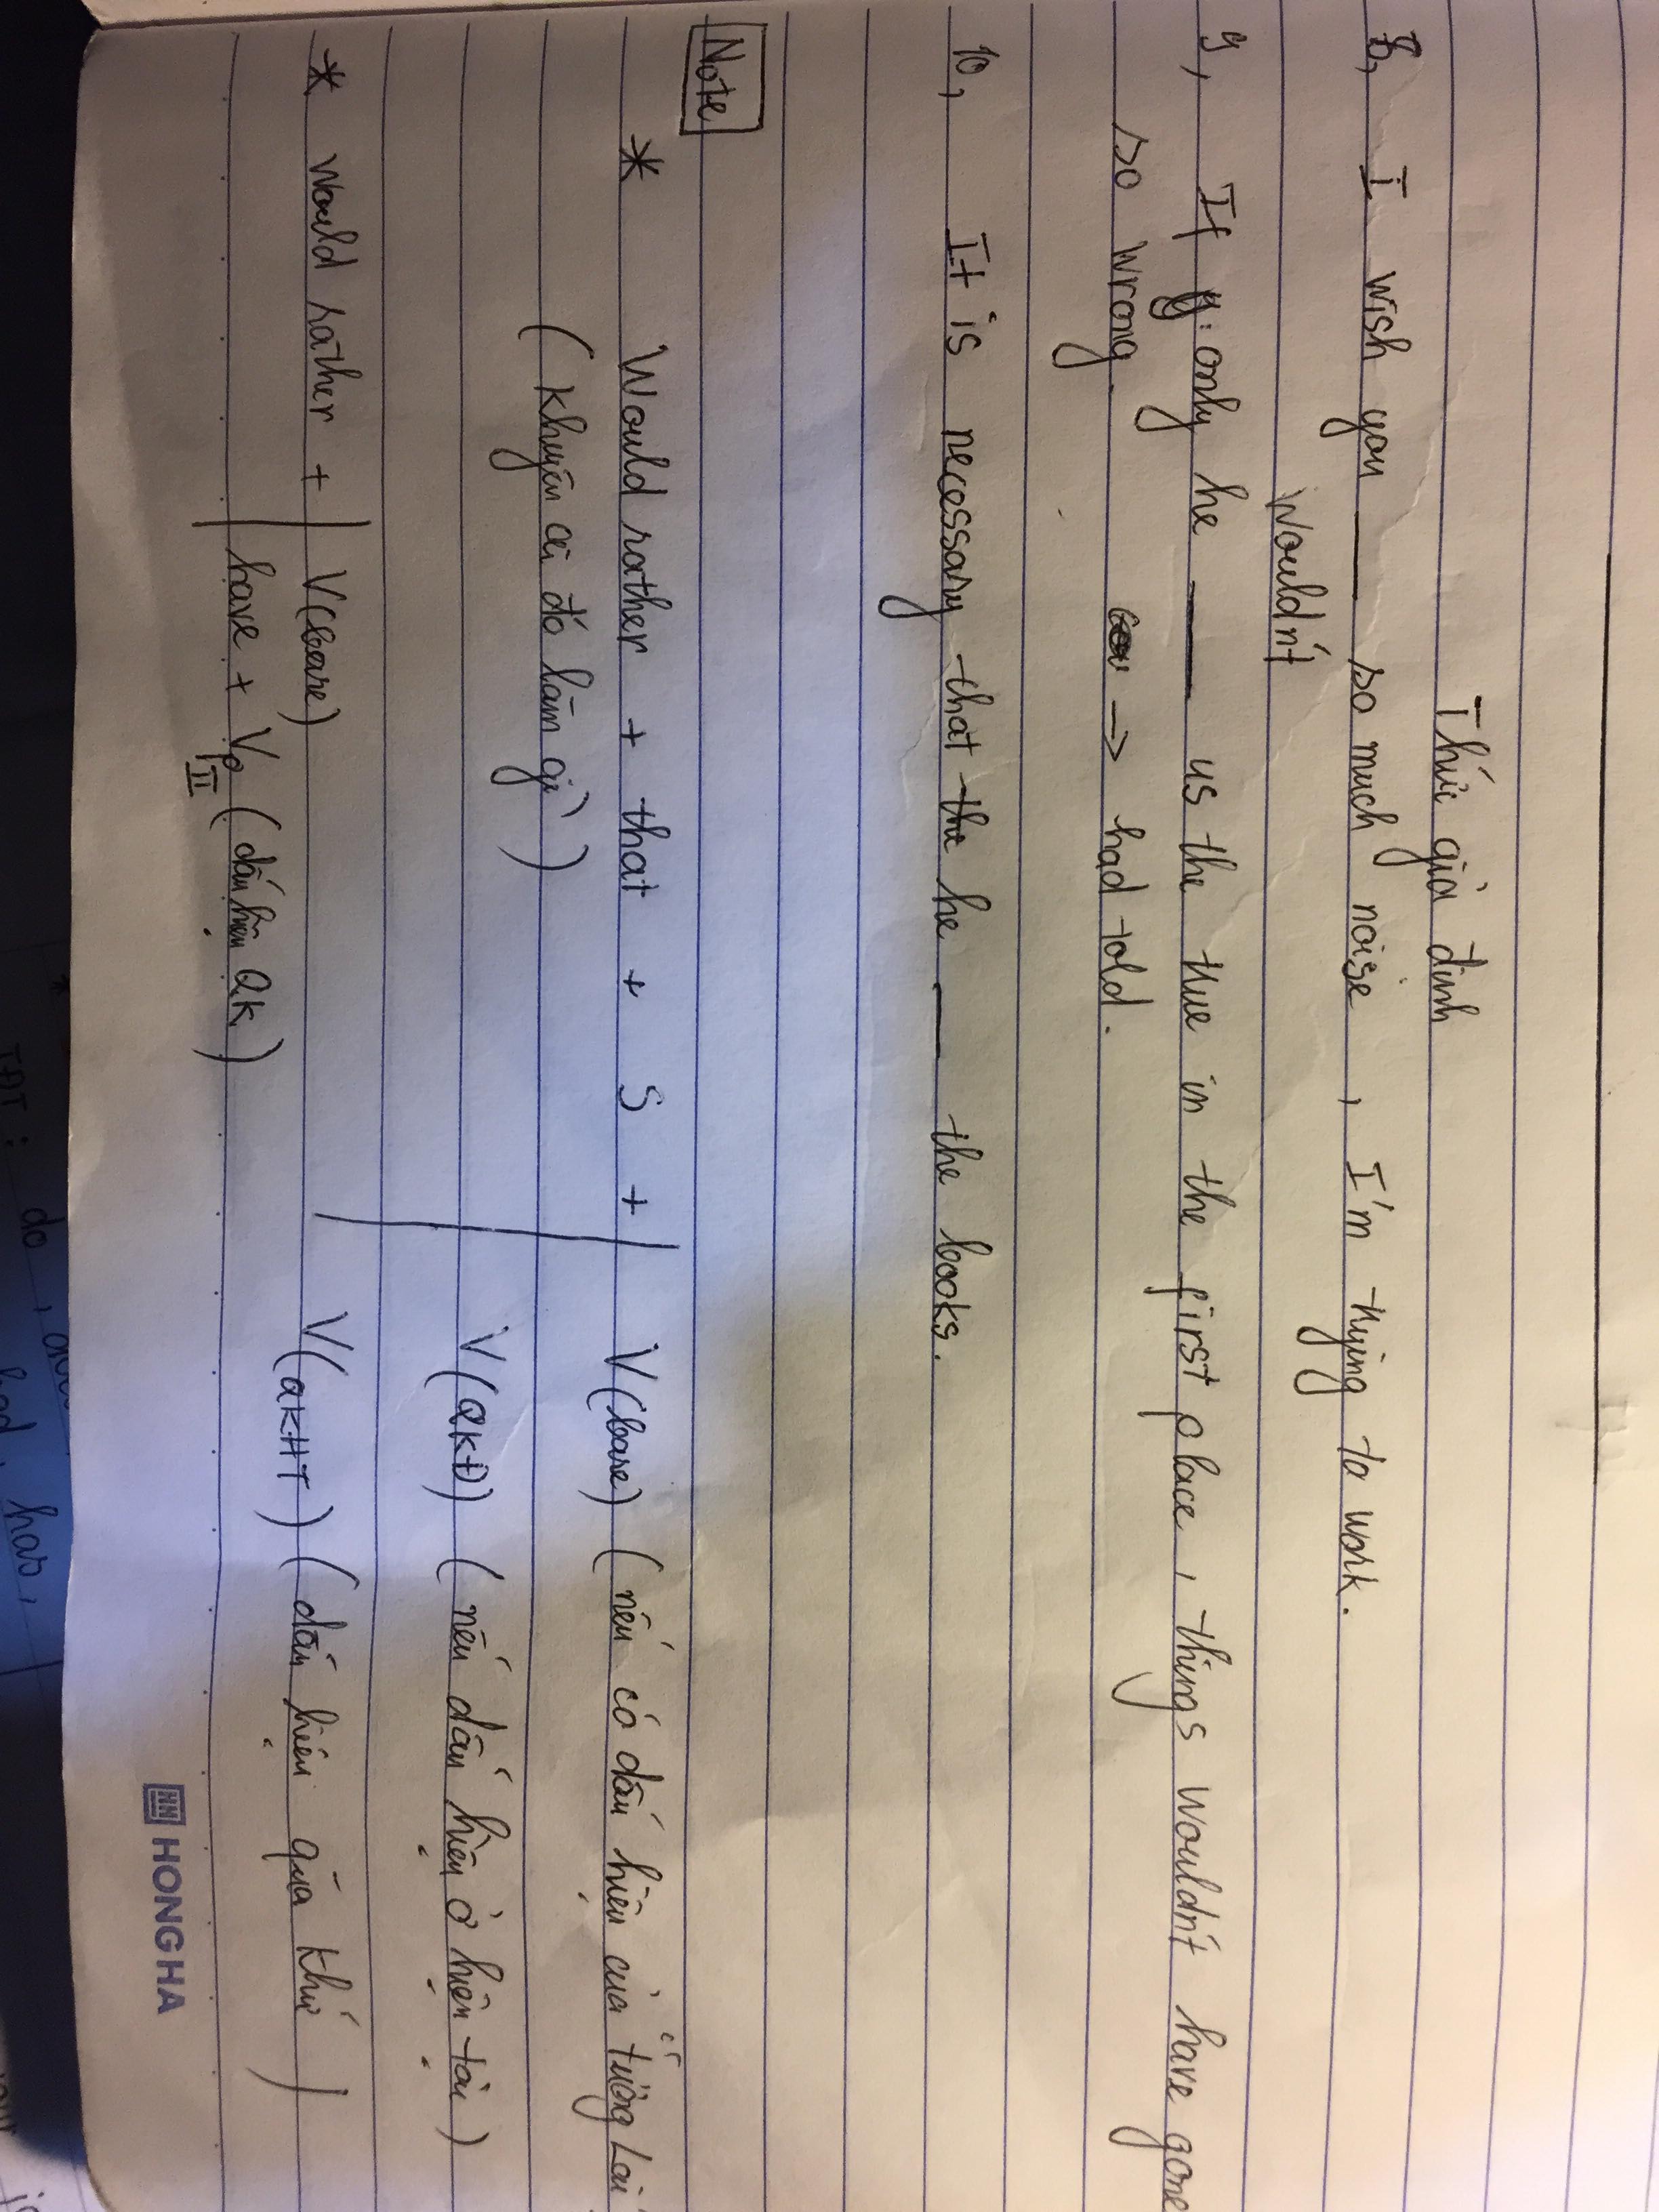 Thức giả định
8, I wish you ___ so much noise, I'm trying to work.
Wouldn't
9, If only he ___ us the true in the first place, things wouldn't have gone
so wrong. → had told.
10, It is necessary that the he ___ the books.
Note
* Would rather + that + S + V(bare) (nếu có dấu hiệu của tương Lai
(khuyên ai đó làm gì)
V(QKĐ) (nếu dấu hiệu ở hiện tại)
V(QKHT) (dấu hiệu qúa khứ)
* Would rather + V(bare)
have + VpII (dấu hiệu QK)
HONG HA
TĐT: do,
had, has,